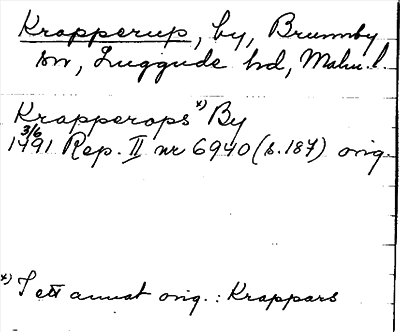 Krapperup, by, Brunnby
sn, Luggude hd, Malm. l.
Krapperops*) By
3/6
1491 Rep. II nr 6940 (s. 187) orig.
*) I ett annat orig.: Krappars